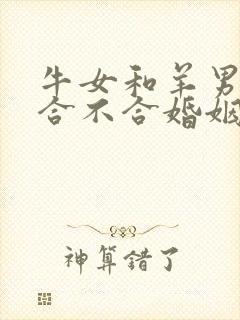 牛女和羊男
合不合婚姻
神算错了